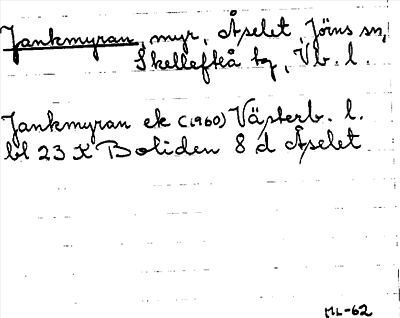 Jankmyran, myr, Åselet, Jörns sn,
Skellefteå tg, Vb. l.
Jankmyran ek (1960) Västerb. l.
bl 23 K Boliden 8 d Åselet
ML-62